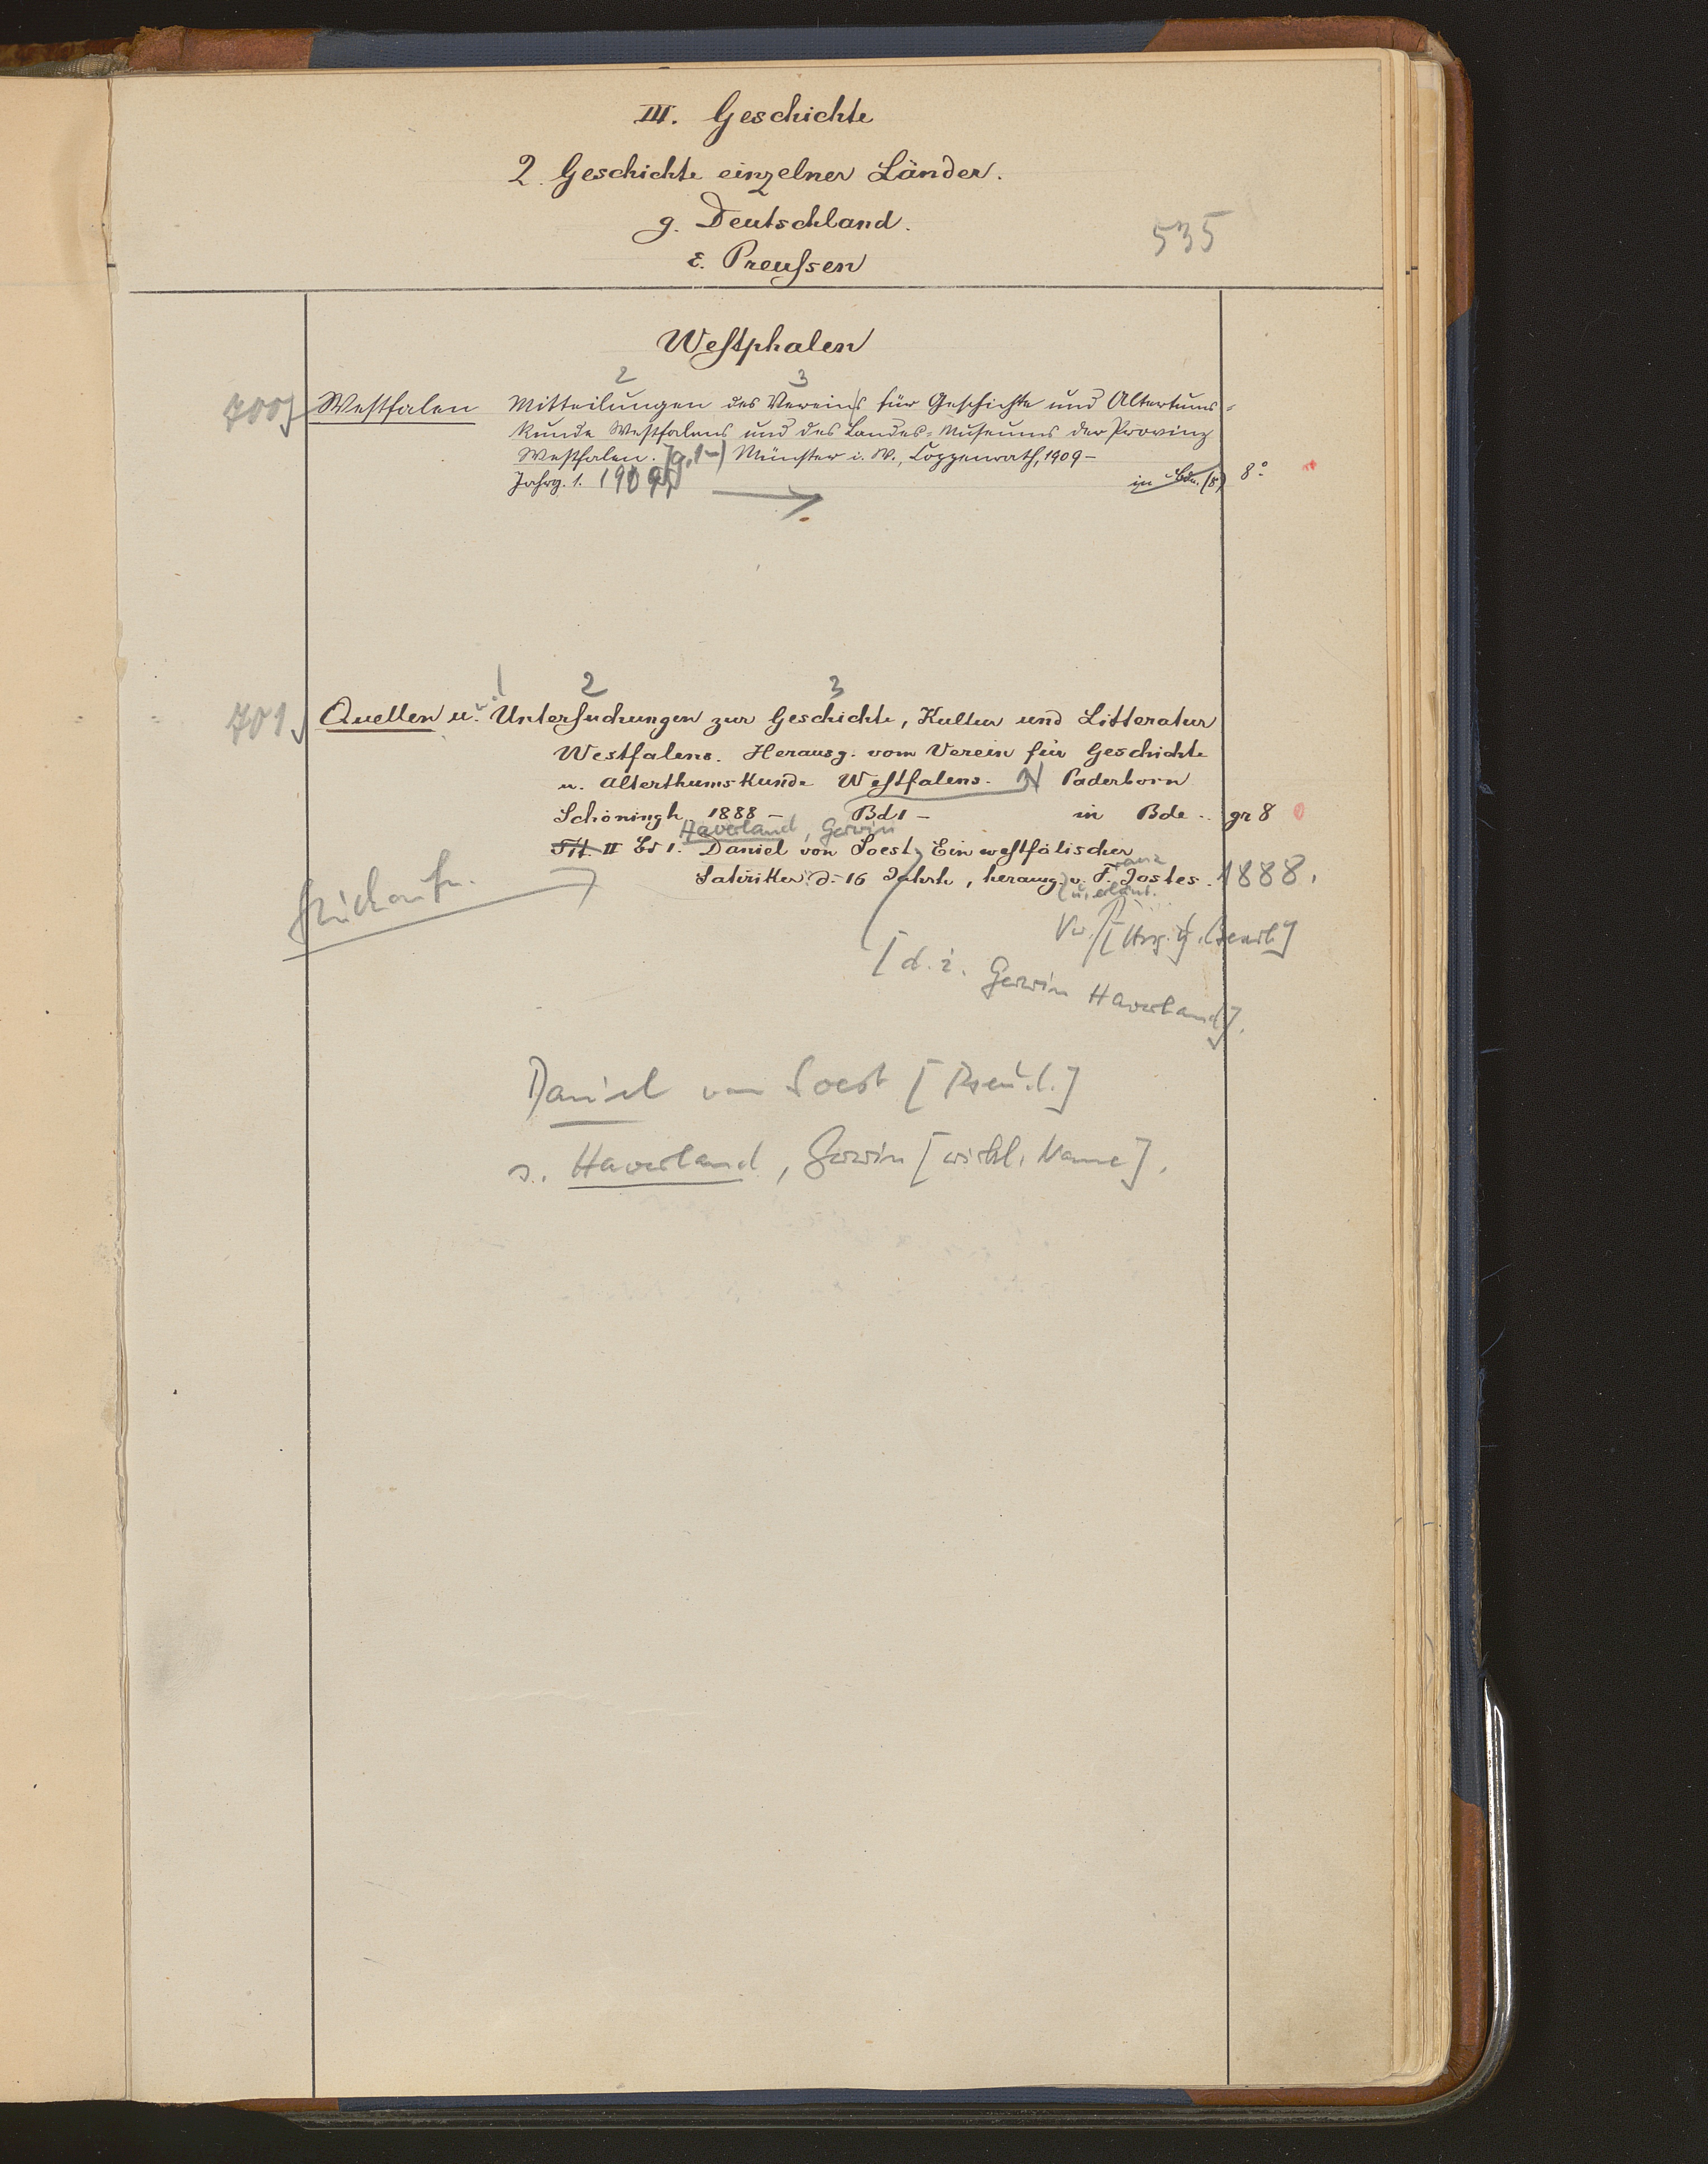 III. Geschichte
2. Geschichte einzelner Länder.
g. Deutschland.
535
ε. Preußen
Westphalen
2 3
700 Westfalen Mitteilungen des Vereins für Geschichte und Altertums=
kunde Westfalens und des Landes=Museums der Provinz
Westfalen. Jg. 1-) Münster i. W., Coppenrath, 1909-
Jahrg. 1. 1909 in Bdn. (8) 8°
1 2 3
701. Quellen u. Untersuchungen zur Geschichte, Kultur und Litteratur
Westfalens. Herausg. vom Verein für Geschichte
u. Alterthumskunde Westfalens. Paderborn
Schöningh 1888 - Bd 1 - in Bde .. gr 8
Haverland, Gerwin
Tit. II Bd 1. Daniel von Soest, Ein westfälischer
Satiriker d. 16 Jahrh, herausg. v. Franz Jostes. 1888.
u. erläut.
Stückaufn.
Vw. [Hrsg. u. Bearb.]
[d. i. Gerwin Haverland].
Daniel von Soest [Pseud.]
s. Haverland, Gerwin [wirkl. Name].